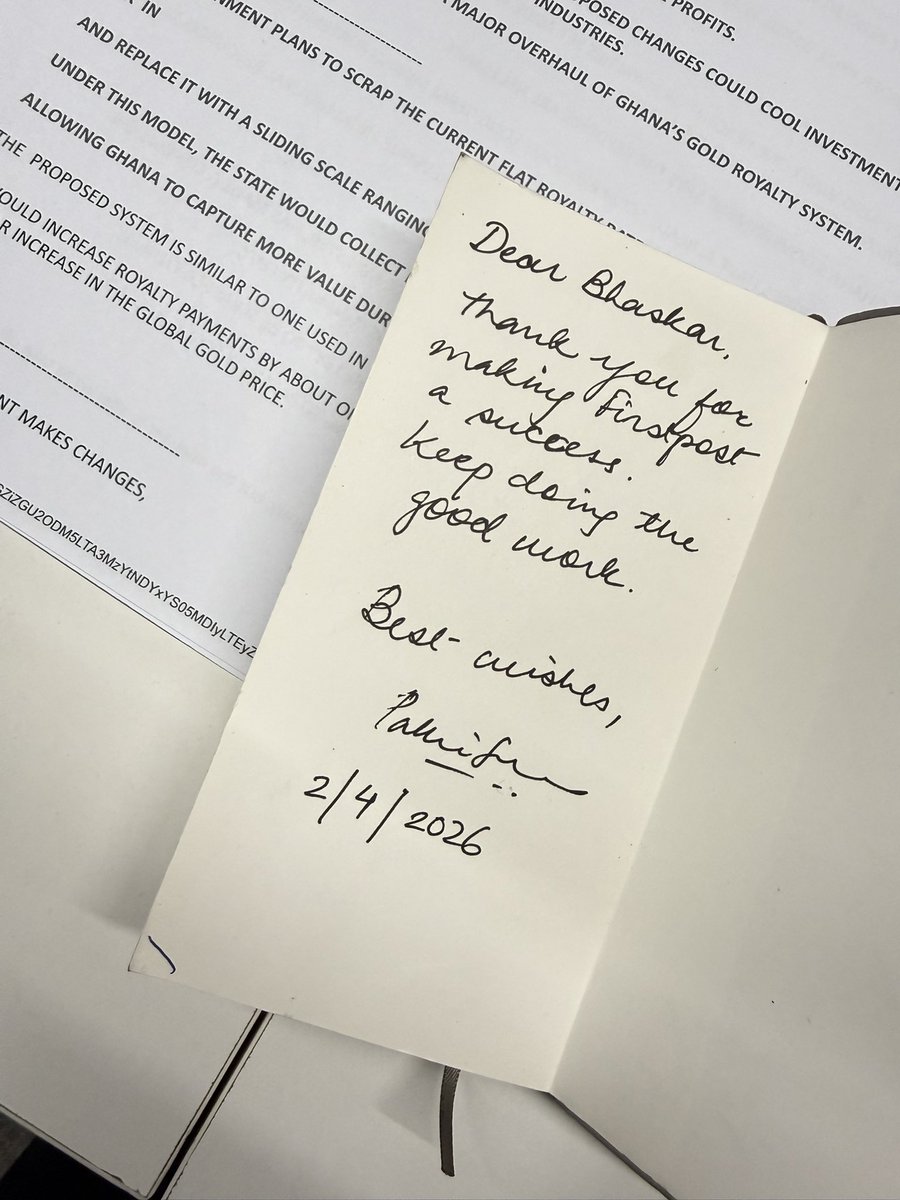 PROFITS.
POSED CHANGES COULD COOL INVESTMENT
INDUSTRIES.
MAJOR OVERHAUL OF GHANA'S GOLD ROYALTY SYSTEM.
IN
NMENT PLANS TO SCRAP THE CURRENT FLAT ROYALTY
AND REPLACE IT WITH A SLIDING SCALE RANGING
UNDER THIS MODEL, THE STATE WOULD COLLECT
ALLOWING GHANA TO CAPTURE MORE VALUE DUR
THE PROPOSED SYSTEM IS SIMILAR TO ONE USED IN
OULD INCREASE ROYALTY PAYMENTS BY ABOUT
R INCREASE IN THE GLOBAL GOLD PRICE.
NT MAKES CHANGES,
Dear Bhaskar,
Thank you for
making Firstpost
a success.
Keep doing the
good work.
Best wishes,
2/4/2026